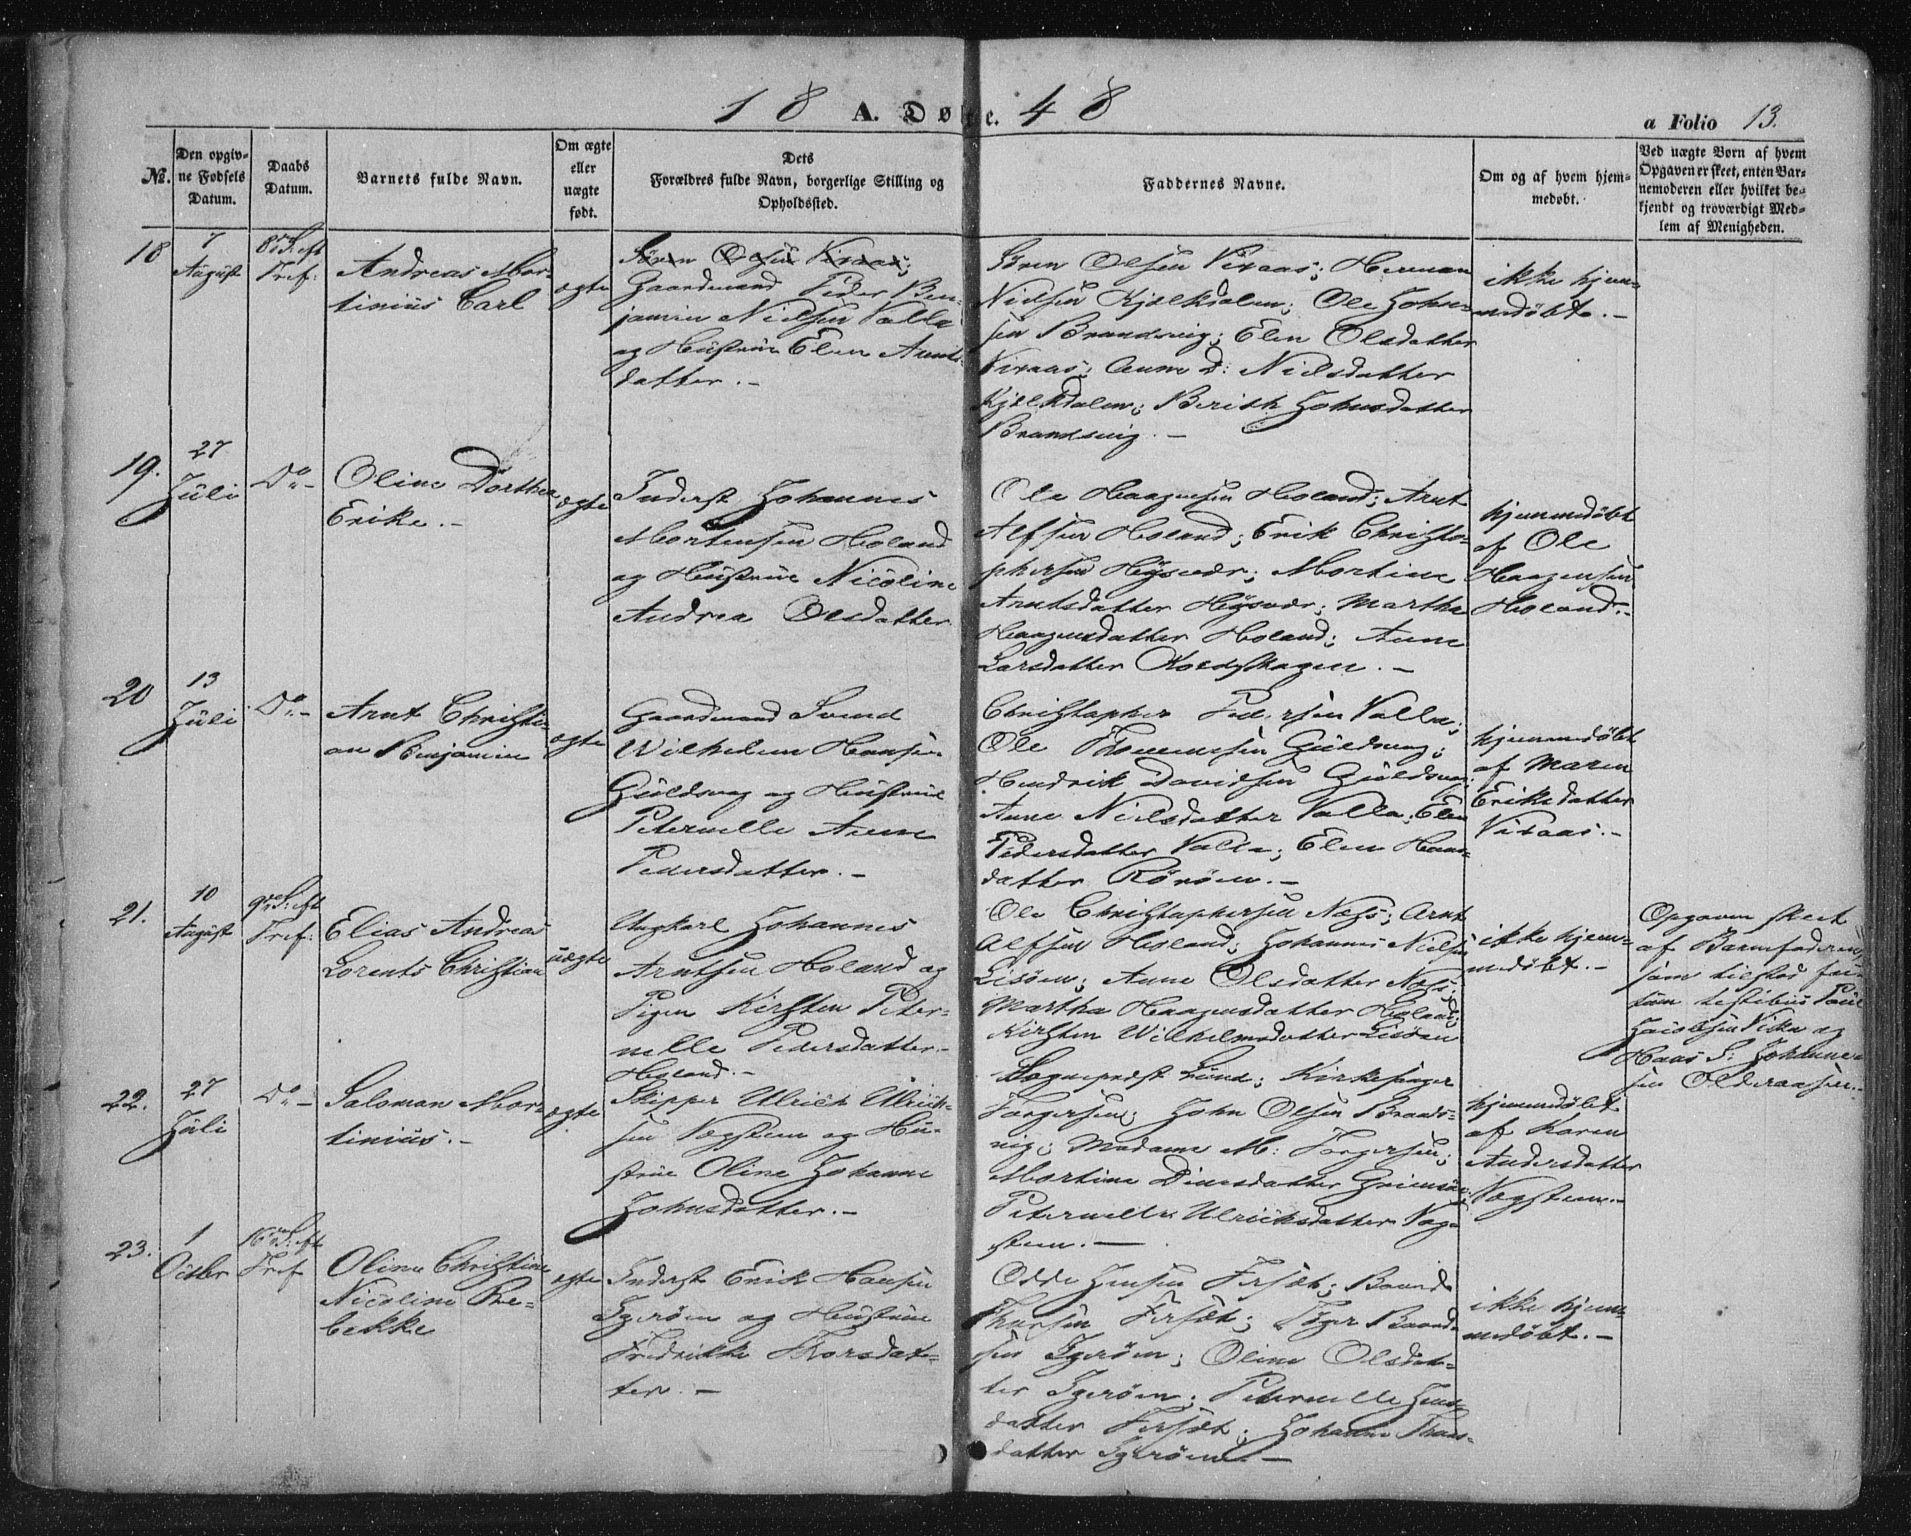 18 A. Døbte. 48
a Folio 13.
No.
Den opgiv-
ne Fødsels
Datum.
Daabs
Datum.
Barnets fulde Navn.
Om ægte
eller
uægte
født.
Dets
Forældres fulde Navn, borgerlige Stilling og
Opholdssted.
Faddernes Navne.
Om og af hvem hjem-
medøbt.
Ved uægte Børn af hvem
Opgaven er skeet, enten Bar-
nemoderen eller hvilket be-
kjendt og troværdigt Med-
lem af Menigheden.
18
7
August
8de S. eft
Tref:
Andreas Mor-
tinius Carl
ægte
Sören Olsen Viraas;
Gaardmand Peder Ben-
jamin Nielsen Valla
og Hustrue Elen Arnts-
datter.-
Sören Olsen Viraas; Herman
Nielsen Kjælkdalen; Ole John-
sen Brandsvig; Elen Olsdatter
Viraas; Anne D: Nielsdatter
Kjelkdalen; Berith Johnsdatter
Brandsvig.-
ikke hjem-
medøbt.-
19.
27
Juli
Do-
Oline Dorthea
Erike.-
ægte
Inderst Johannes
Mortensen Holand
og Hustrue Nicoline
Andrea Olsdatter
Ole Haagensen Holand; Arnt
Alfsen Holand; Erik Christo-
phersen Høysvær; Martine
Arntsdatter Høysvær; Martha
Haagensdatter Holand; Anne
Larsdatter .-
hjemmedøbt
af Ole
Haagensen
Holand.-
20
13
Juli
Do-
Arnt Christi-
an Benjamin
ægte
Gaardmand Svend
Wilhelm Hansen
Guldsvog og Hustrue
Peternelle Anne
Pedersdatter.-
Christopher Pedersen Valla;
Ole Thommesen Guldsvog;
Hendrik Davidsen Guldsvog;
Anne Nielsdatter Valla; Elen
Pedersdatter Valla; Elen Hans-
datter Rørøen.-
hjemmedøbt
af Maren
Eriksdatter
Viraas.-
21.
10
August
9de S: eft
Tref:
Elias Andreas
Lorents Christian
uægte
Ungkarl Johannes
Arntsen Holand og
Pigen Kirsten Peter-
nelle Pedersdatter
Holand.-
Ole Christophersen Næss; Arnt
Alfsen Holand; Johannes Nielsen
Lisøen; Anne Olsdatter Næss;
Martha Haagensdatter Holand;
Kirsten Wilhelmsdatter Lisøen
ikke hjem-
medøbt.-
Opgaven skeet
af Barnefaderen,
som tilstod
testibus Poul
Jacobsen og
Hans S: Johanne-
sen
22.
27
Juli
Do-
Saloman Mor-
tinius.-
ægte
Skipper Ulrich Ulrich-
sen Vogsteen og Hu-
strue Oline Johanna
Johnsdatter.-
Sogneprest Lund; Kirkesanger
Torgersen; John Olsen Brands-
vig; Madame M: Torgersen;
Martine Dinesdatter
Peternelle Ulrichsdatter Vog-
steen.-
hjemmedøbt
af Karen
Andersdatter
Vogsteen.-
23.
1
Octbr
16de S: eft
Tref
Oline Christine
Nicoline Re-
bekke
ægte
Inderst Erik Hansen
Igerøen og Hustrue
Fredrikke Thorsdat-
ter.-
Odde Jensen Forsæt; Baard
Thorsen Forsæt; Baard-
sen Igerøen; Oline Olsdat-
ter Igerøen; Peternelle Jens-
datter Forsæt; Johanna
datter Igerøen.-
ikke hjem-
medøbt.-